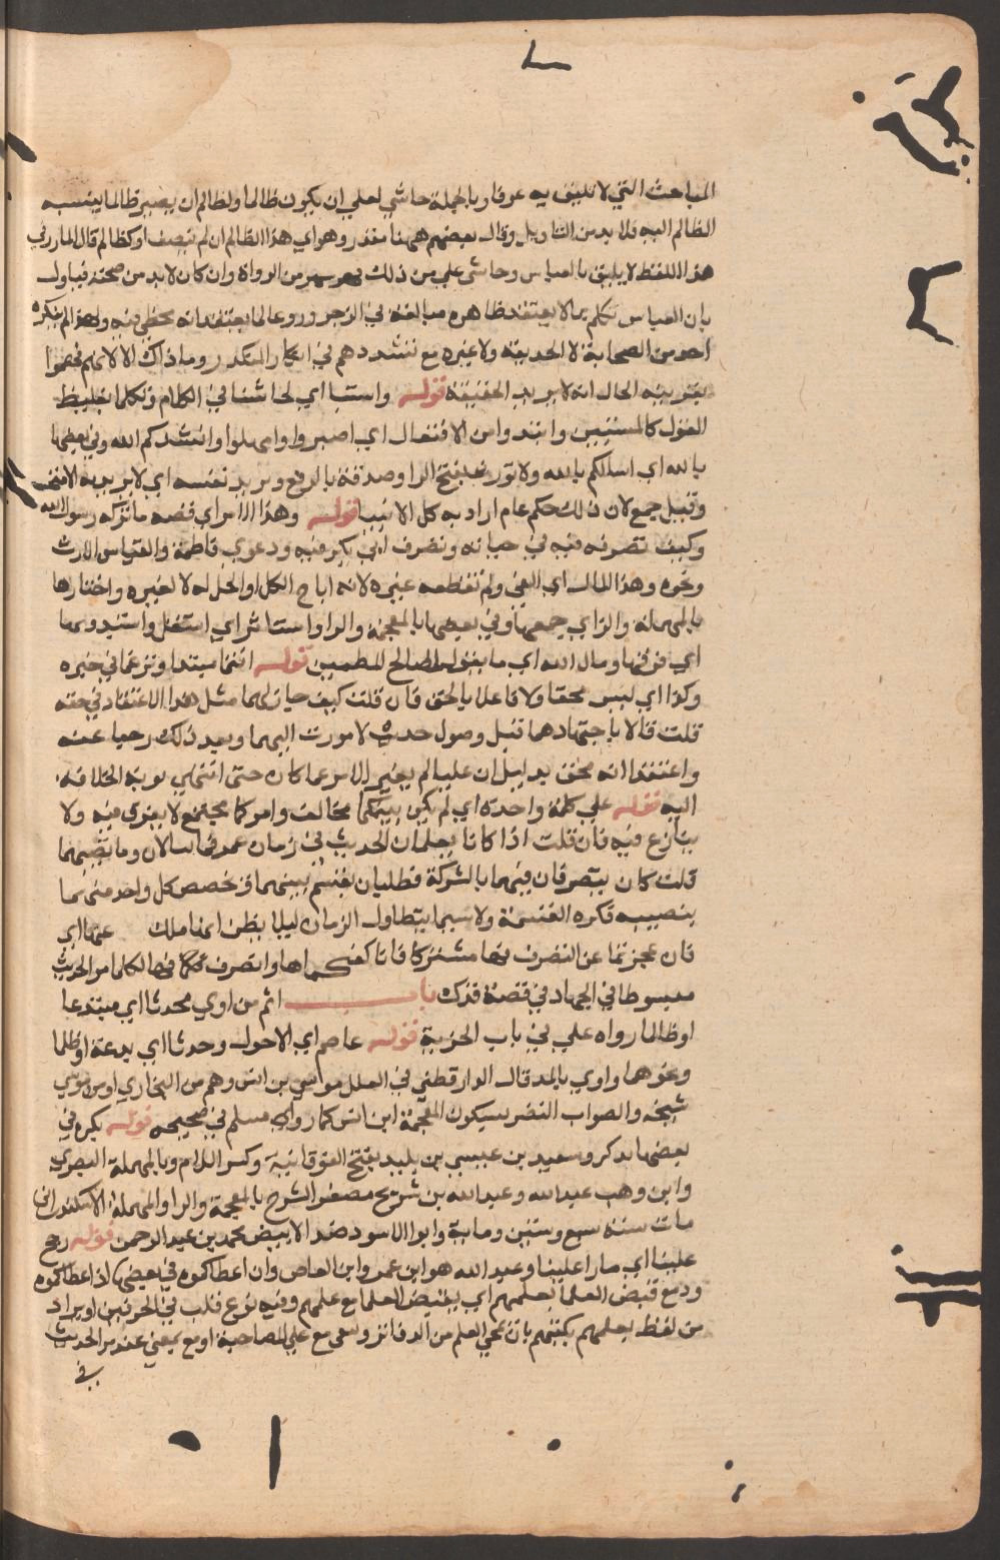 المباحث التي لا تليق به عرفا وبالجملة حاشى لعلي ان يكون ظالما والظالم ان يصير ظالما بنسبة
الظالم اليه فلا بد من التاويل وقال بعضهم ههنا مقدر وهو اي هذا الظالم ان لم ينصف او كالظالم قال المازري
هذا اللفظ لا يليق بالعباس وحاشى علي من ذلك فهو سهو من الرواة وان كان لا بد من صحته فياول
بان العباس تكلم بما لا يعتقد ظاهره مبالغة في الزجر وردعا لما يعتقد انه مخطي فيه ولهذا لم ينكره
احد من الصحابة لا الخليفة ولا غيره مع تشددهم في انكار المنكر وما ذاك الا لانهم فهموا
بقرينة الحال انه لا يريد الحقيقة قوله واستبا اي تخاشنا في الكلام وتكلما بغليظ
القول كالمستبين واتئدوا من الافتعال اي اصبروا وامهلوا وانشدكم الله وفي بعضها
بالله اي اسالكم بالله ولا نورث بفتح الرا وصدقة بالرفع ويريد نفسه اي لا يريد به الامة
وقيل جمع لان ذلك حكم عام اراد به كل الانبيا قوله وهذا الامر اي قصة ما تركه رسول الله
وكيف تصرفه فيه في حياته وتصرف ابي بكر فيه ودعوى فاطمة والعباس الارث
ونحوه وهذا المال اي الفي ولم يعطه غيره لانه اباح الكل او الجل له لا لغيره واختازها
بالمهملة والزاي جمعها وفي بعضها بالمعجمة والرا واستاثر اي استقل واستبد وبثها
اي فرقها ومال الله اي ما يفعل لمصالح المسلمين قوله انتما مبتدا وتزعمان خبره
وكذا اي ليس محقا ولا فاعلا بالحق فان قلت كيف جاز لهما مثل هذا الاعتقاد في حقه
قلت قالا باجتهادهما قبل وصول حديث لا نورث اليهما وبعد ذلك رجعا عنه
واعتقدا انه محق بدليل ان عليا لم يغير الامر عما كان حتى انتهى نوبة الخلافة
اليه قوله على كلمة واحدة اي لم يكن بينكما مخالفة وامركما مجتمع لا تفرق فيه ولا
تنازع فيه فان قلت اذا كانا يعلمان الحديث في زمان عمر فما يسالان وما نصيبهما
قلت كان يتصرفان فيهما بالشركة فطلبا ان يقسم بينهما ويخصص كل واحد منهما
بنصيبه فكره القسمة ولا سيما بتطاول الزمان ليلا يظن انها ملك عنها اي
فان عجزتما عن التصرف فيها مشتركا فانا اكفيكماها واتصرف فيها لكما مر الحديث
مبسوطا في الجهاد في قصة فدك باب اثم من اوى محدثا اي مبتدعا
او ظالما رواه علي في باب الجزية قوله عاصم اي الاحول وحدثا اي بدعة او ظلما
ونحوهما واوى بالمد قال الدارقطني في العلل موسى بن انس وهم من البخاري او من موسى
شيخه والصواب النضر بسكون المعجمة ابن انس كما رواه مسلم في صحيحه قوله يكره في
بعضها يذكر وسعيد بن عيسى بن تليد بفتح الفوقانية وكسر اللام وبالمهملة المصري
وابن وهب عبد الله وعبد الله بن شريح مصغر الشرح بالمعجمة والرا والمهملة الاسكندراني
مات سنة سبع وستين وماية وابو الاسود ضد الابيض محمد بن عبد الرحمن قوله حج
علينا اي مارا علينا وعبد الله هو ابن عمرو ابن العاص وان اعطاكموه في بعضها اذ اعطاكموه
ومع قبض العلما بعلمهم اي بقبض العلما مع علمهم وفيه نوع قلب في الحرفين او يراد
من لفظ بعلمهم بكتبهم بان يمحى العلم من الدفاتر ويبقى مع على المصاحبة او مع بمعنى عند مر الحديث
في